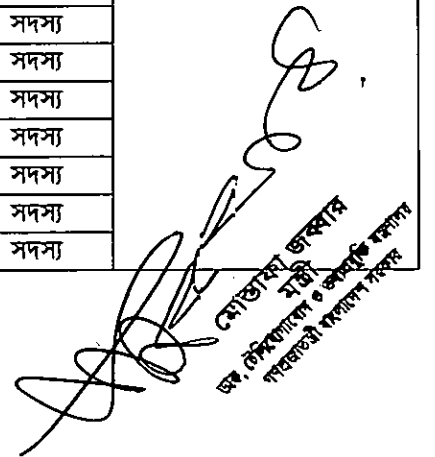 সদস্য
সদস্য
সদস্য
সদস্য
সদস্য
সদস্য
সদস্য
মোস্তাফা জব্বার
মন্ত্রী
ডাক, টেলিযোগাযোগ ও তথ্যপ্রযুক্তি মন্ত্রণালয়
গণপ্রজাতন্ত্রী বাংলাদেশ সরকার